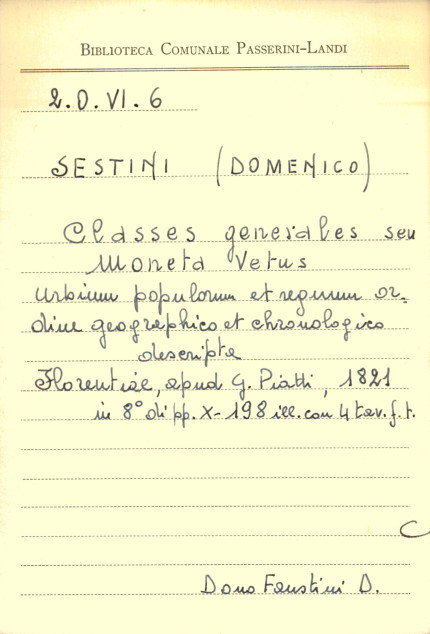 BIBLIOTECA COMUNALE PASSERINI-LANDI
2.O.VI.6
SESTINI (DOMENICO)
Classes generales seu
Moneta Vetus
Urbium populorum et regnum or-
dine geographico et chronologico
descripta
Florentiae, apud G. Piatti, 1821
in 8° di pp. X-198 ill. con 4 tav. f. t.
C
Dono Faustini D.